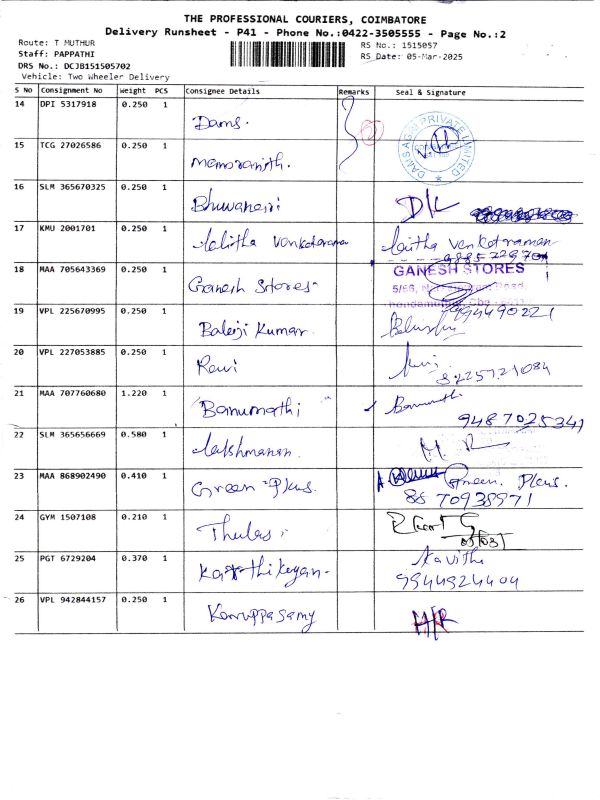 THE PROFESSIONAL COURIERS, COIMBATORE
Delivery Runsheet - P41 - Phone No.:0422-3505555 - Page No.:2
Route: T MUTHUR
RS No.: 1515057
Staff: PAPPATHI
RS Date: 05-Mar-2025
DRS No.: DCJB151505702
Vehicle: Two Wheeler Delivery
S No Consignment No Weight PCS Consignee Details Remarks Seal & Signature
14 DPI 5317918 0.250 1
Dams.
2
DAMSAGRI PRIVATE LIMITED
15 TCG 27026586 0.250 1
16 SLM 365670325 0.250 1
Bhuwaneswari
17 KMU 2001701 0.250 1
Lalitha Venkotaraman
Laitha Venkotraman
18 MAA 705643369 0.250 1
GANESH STORES
Ganesh Stores
19 VPL 225670995 0.250 1
9994490221
Balaji Kumar.
20 VPL 227053885 0.250 1
Ravi
8225721084
21 MAA 707760680 1.220 1
Banumathi
9487025341
22 SLM 365656669 0.580 1
Lakshmanan.
23 MAA 868902490 0.410 1
Green Plus.
Green. Plus.
8870938971
24 GYM 1507108 0.210 1
Thulasi
25 PGT 6729204 0.370 1
Kavitha
Karthikeyan-
9944924404
26 VPL 942844157 0.250 1
Karuppasamy